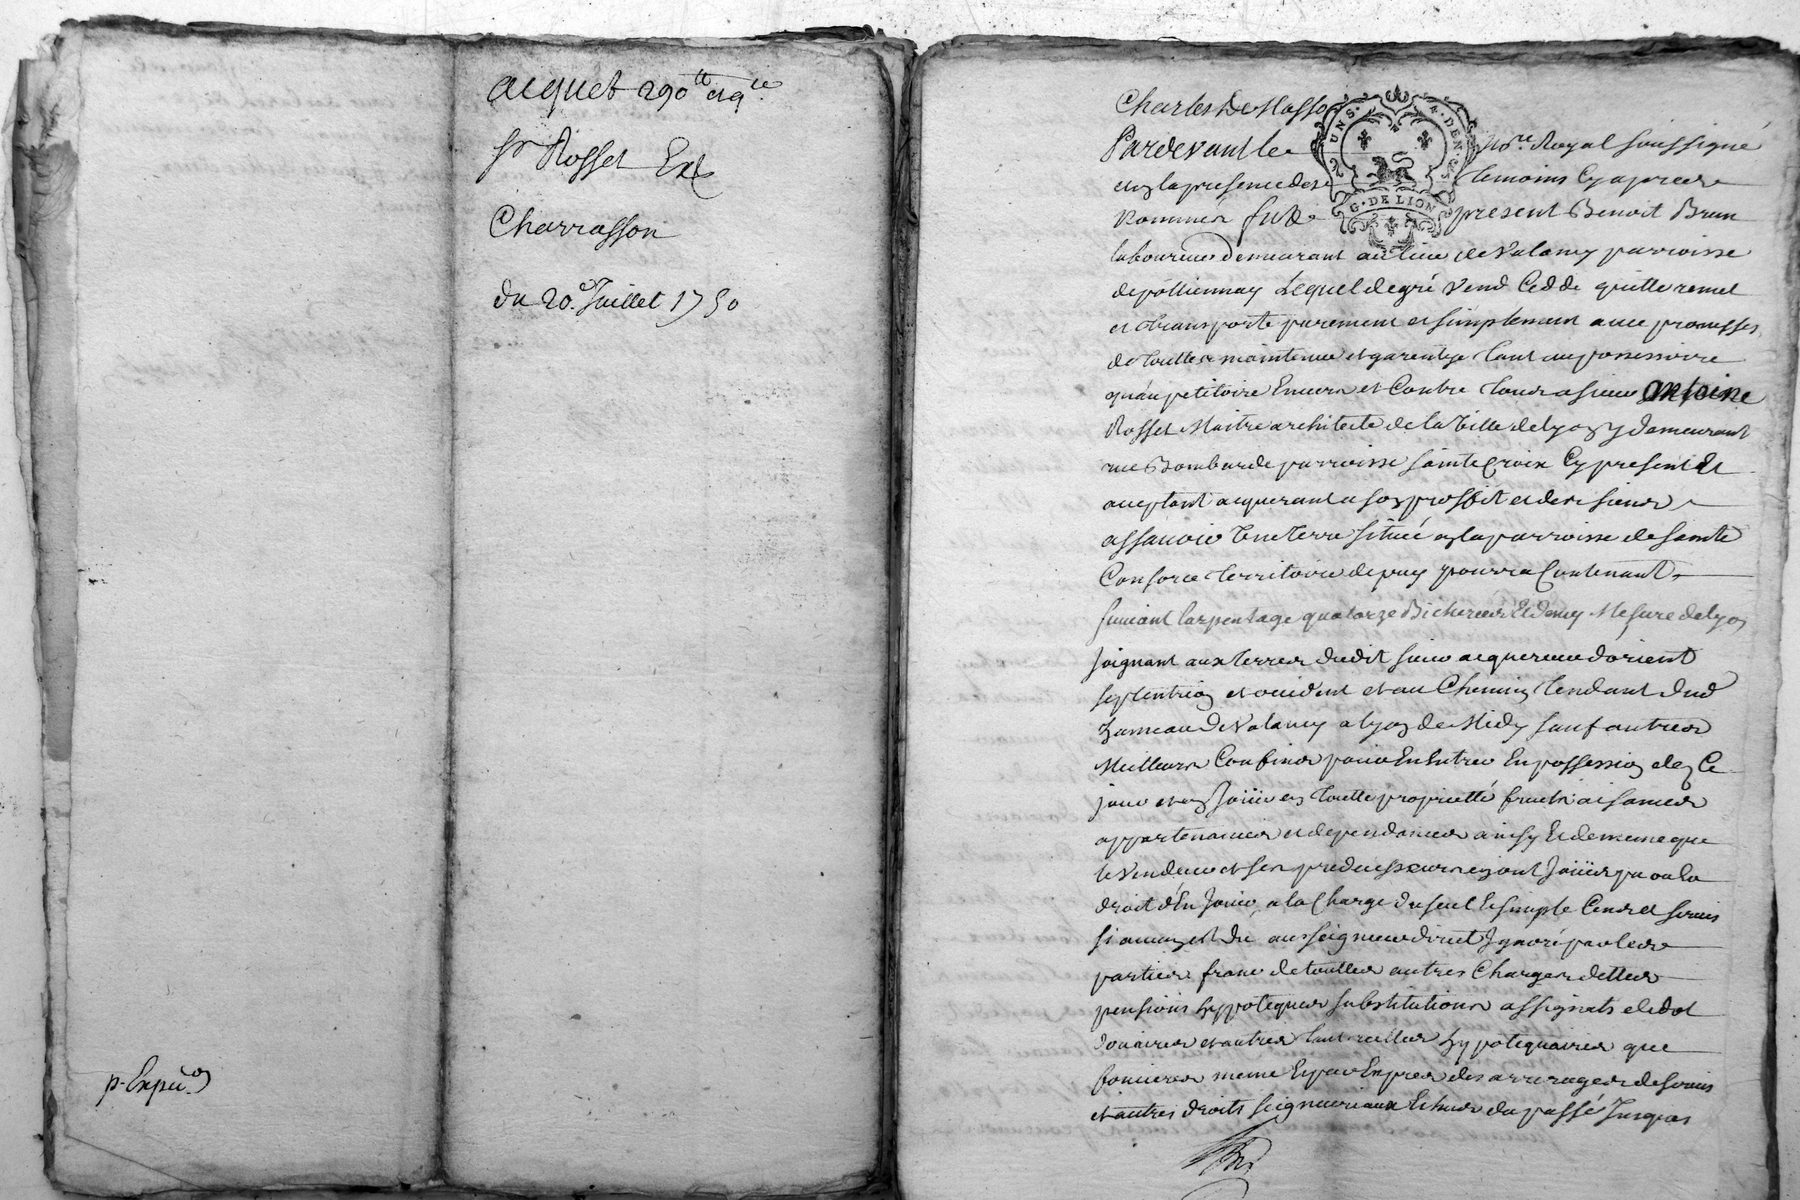 acquet 290tt etq.te
Sr Rosset Ext
Charrasson
du 20.e Juillet 1750
p. Expu.on
Charles De Masso
UNS. 4. DEN.
G. DE LION
Pardevant le no.re Royal soussigné
en la presence des temoins cy apres
nommés fut present Benoit Brun
laboureur demeurant au lieu de Valancy parroisse
de pollionnay Lequel de gré vend Cedde quitte remet
et transporte purement et simplement avec promesses
de touttes maintenue et garentye tant au possessoire
qu'au petitoire Envers et Contre tous a sieur Antoine
Rosset Maitre architecte de la Ville de Lyon y demeurant
rue Bombarde parroisse sainte Croix Cy present Et
acceptant acquerant a son proffit et des siens
assavoir Une terre située en la parroisse de sainte
Consorce territoire de puy pourra Contenant
suivant l'arpentage quatorze Bicherées Et demy Mesure de lyon
joignant aux terres dudit sieur acquereur d'orient
septentrion et occident et au Chemin tendant dud
hameau de Valancy a lyon de Midy sauf autres
Meilleurs Confins pour En Entrer En possession des Ce
jour et en Joüir en toutte proprietté fruits aisances
appartenances et dependances ainsy Et de meme que
le Vendeur et ses predecesseurs en ont Joüis pu ou Eu
droit d'En Jouir, a la Charge du seul Et simple Cens et servis
si aucun est du au seigneur direct Ignoré par les
parties franc de touttes autres Charges dettes
pensions hypoteques substitutions assignats de dot
douaires et autres tant reelles hypotequaires que
foncieres meme Et par Exprès des arrerages de servis
et autres droits seigneuriaux Echus du passé Jusques